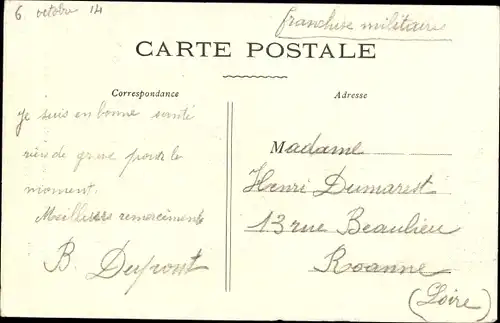 6. octobre 14
franchise militaire
CARTE POSTALE
Correspondance
Adresse
je suis en bonne santé
rien de grave pour le
moment.
Meilleurs remerciements
B. Dupont
Madame
Henri Dumarest
13 rue Beaulieu
Roanne
(Loire)